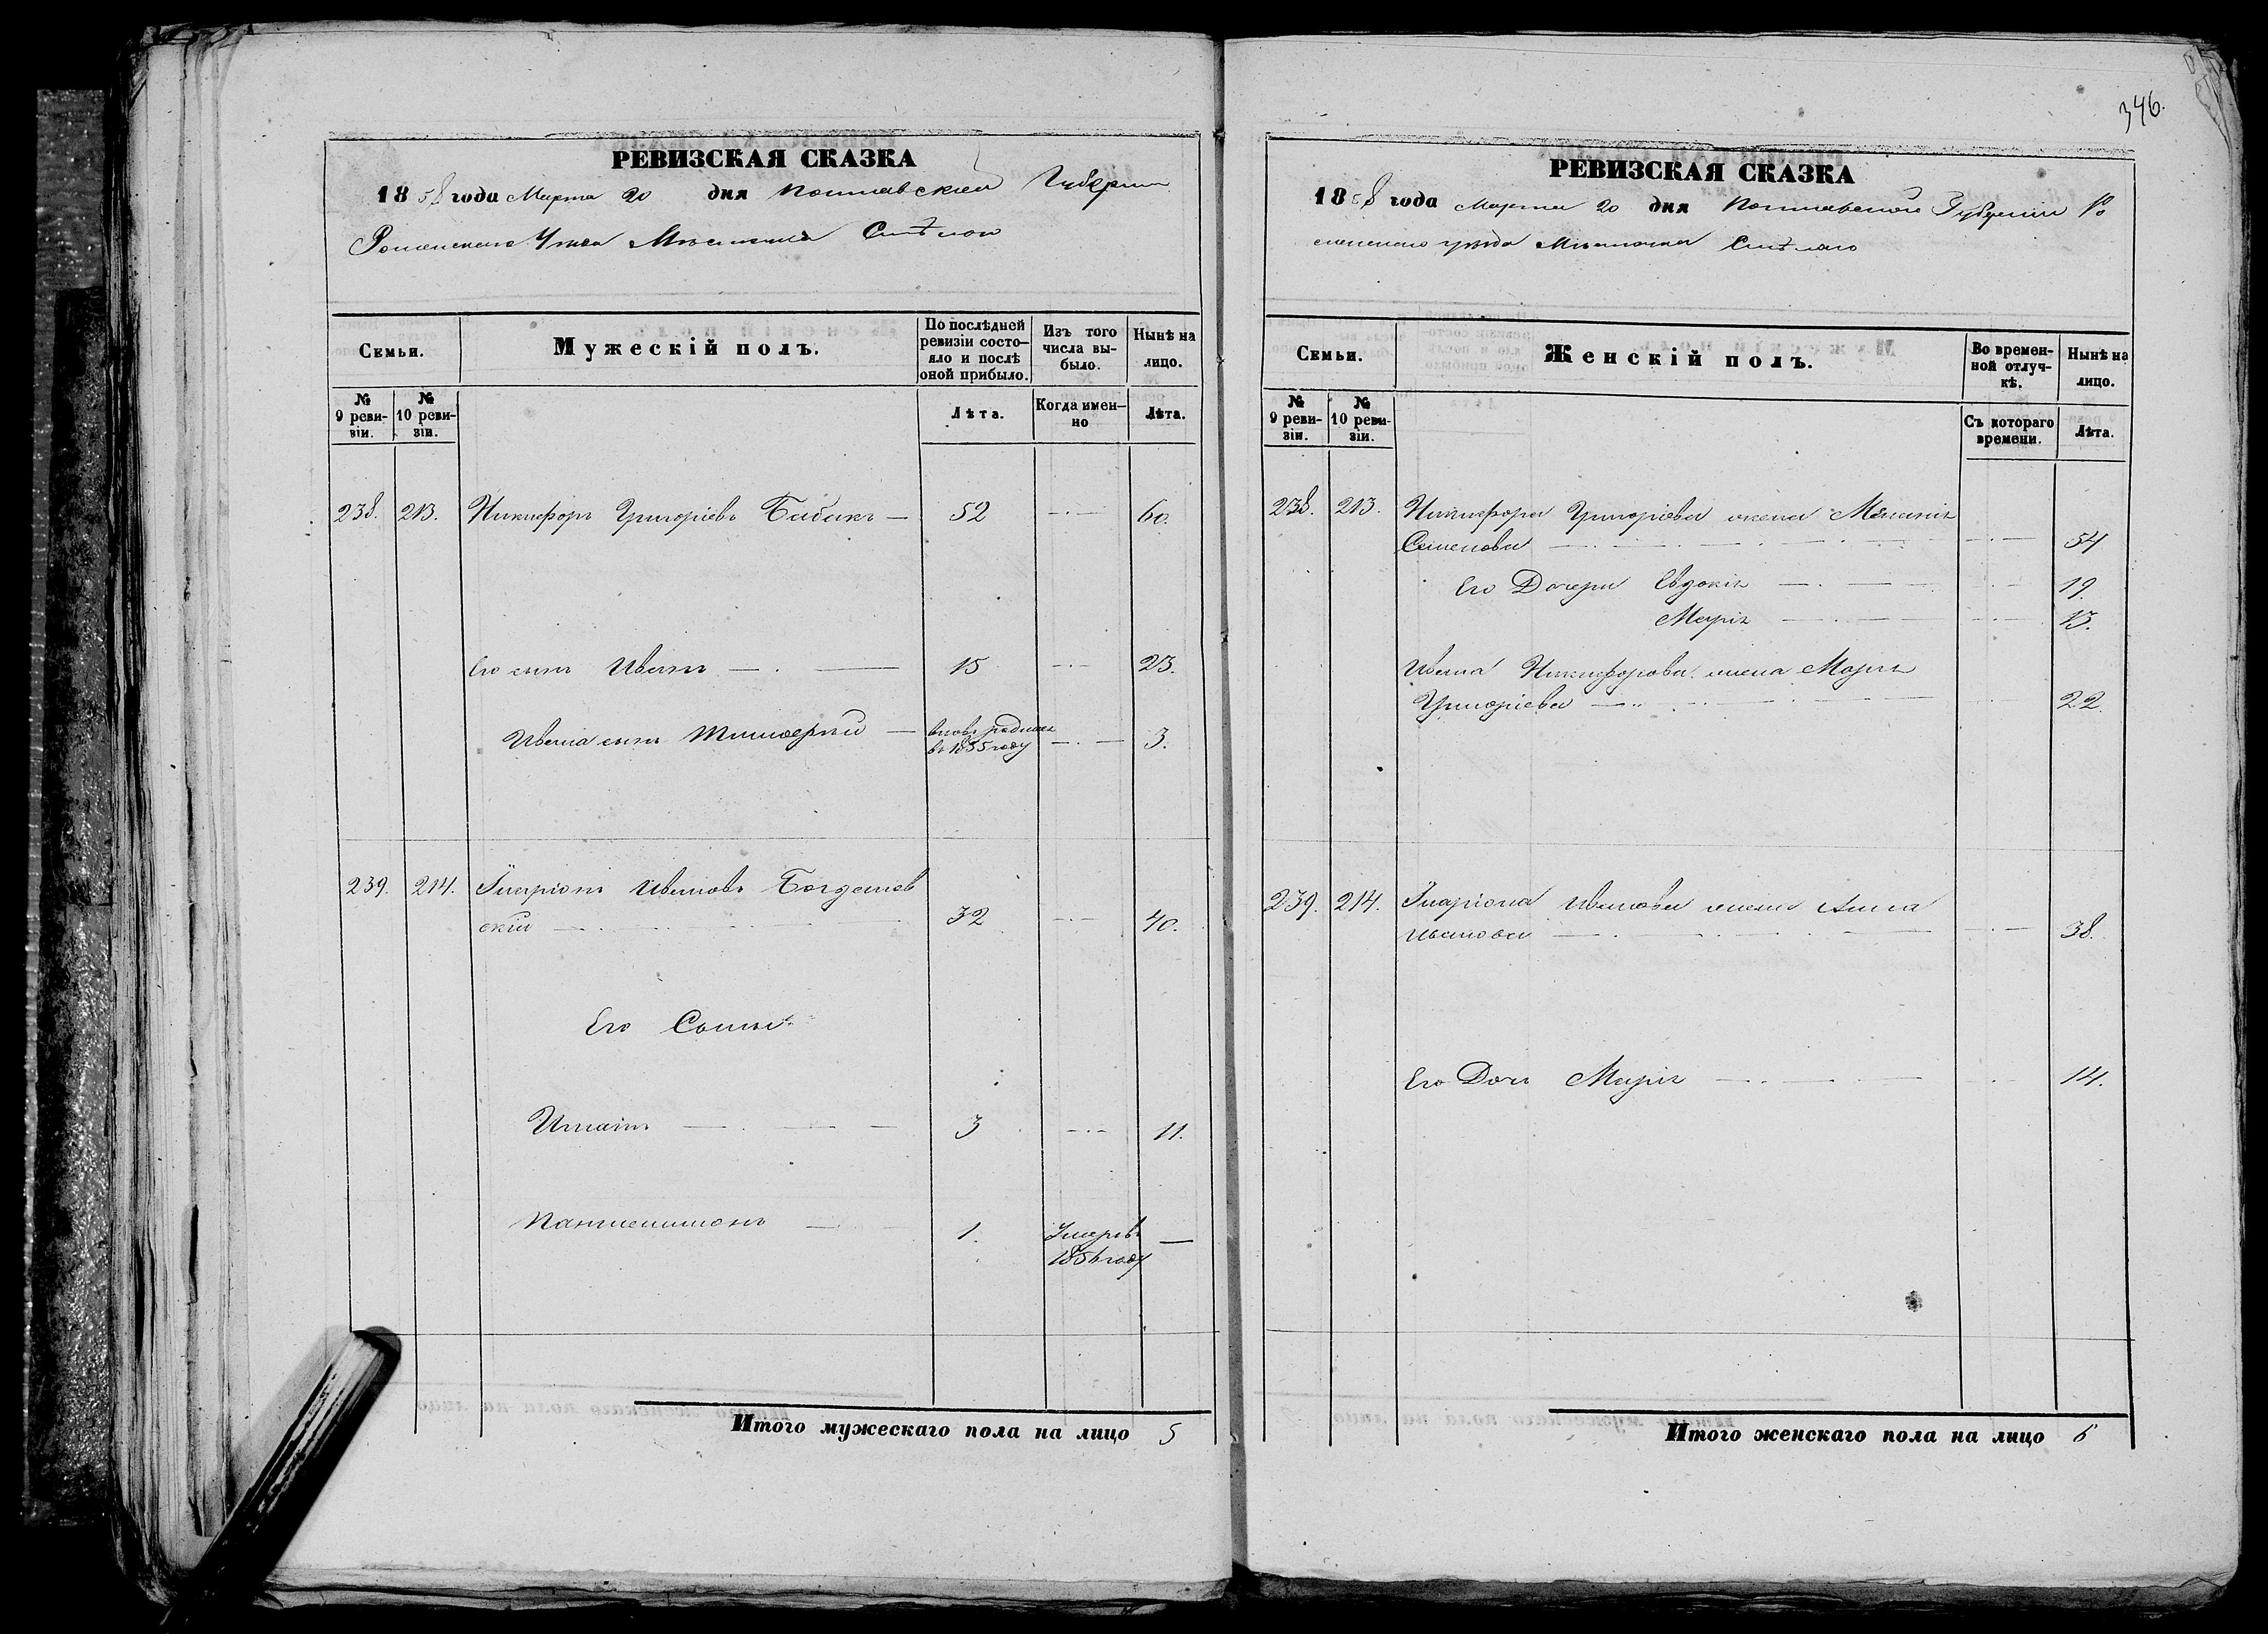 346.
РЕВИЗСКАЯ СКАЗКА
1858 года Марта 20 дня Полтавской Губернии
Роменскаго Уезда Местечка Смѣлого
Семьи. Мужескій полъ. По послѣдней ревизіи состо- яло и послѣ оной прибыло. Изъ того числа вы- было. Нынѣ на лицо.
№ 9 реви- зіи. № 10 реви- зіи. Лѣта. Когда имен- но Лѣта.
238. 213. Никифоръ Григоріевъ Бабакъ — 52 — 60.
Его сынъ Иванъ — 15 — 23.
Ивана сынъ Тимофей — вновь рожден
въ 1855 году — 3.
239. 214. Іларіонъ Ивановъ Богданов
скій — 32 — 40.
Его Сыны
Игнатъ — 3 — 11.
Пантелимонъ — 1. Умеръ въ —
1856 году
Итого мужескаго пола на лицо 5
РЕВИЗСКАЯ СКАЗКА
1858 года Марта 20 дня Полтавской Губерніи Ро
менскаго уезда Местечка Смѣлаго
Семьи. Женскій полъ. Во времен- ной отлуч- кѣ. Нынѣ на лицо.
№ 9 реви- зіи. № 10 реви- зіи. Съ котораго времени. Лѣта.
238. 213. Никифора Григоріева жена Меланія
Семенова — 54
Его Дочери Евдокія — 19.
Марія — 13.
Ивана Никифорова жена Марія
Григоріева — 22.
239. 214. Іларіона Иванова жена Анна
Иванова — 38.
Его Дочь Марія — 14.
Итого женскаго пола на лицо 6